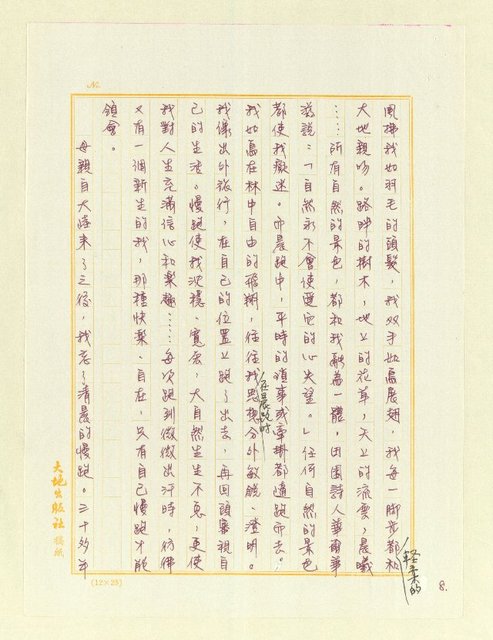 風拂我如羽毛的頭髮，我双手如鳥展翅，我每一脚步都和
大地親吻。路畔的樹木，地上的花草，天上的流雲，晨曦
……所有自然的景色，都和我融為一體，田園詩人華爾華
茲說：「自然永不會使愛它的心失望。」任何自然的景色
都使我癡迷。而晨跑中，平時的瑣事或牽掛都遠跑而去。
我如鳥在林中自由的飛翔，往往我思想分外敏銳、澄明。
在晨跑時
我像出外旅行，在自己的位置上跑了出去，再回頭審視自
己的生活。慢跑使我沈穩、寬宏，大自然生生不息，更使
我對人生充滿信心和樂趣……每次跑到微微出汗時，彷彿
又有一個新生的我，那種快樂、自在，只有自己慢跑才能
領會。
母親自大陸來了之後，我忘了清晨的慢跑。三十多年
輕柔的
8.
No.
大地出版社稿紙
(12×25)